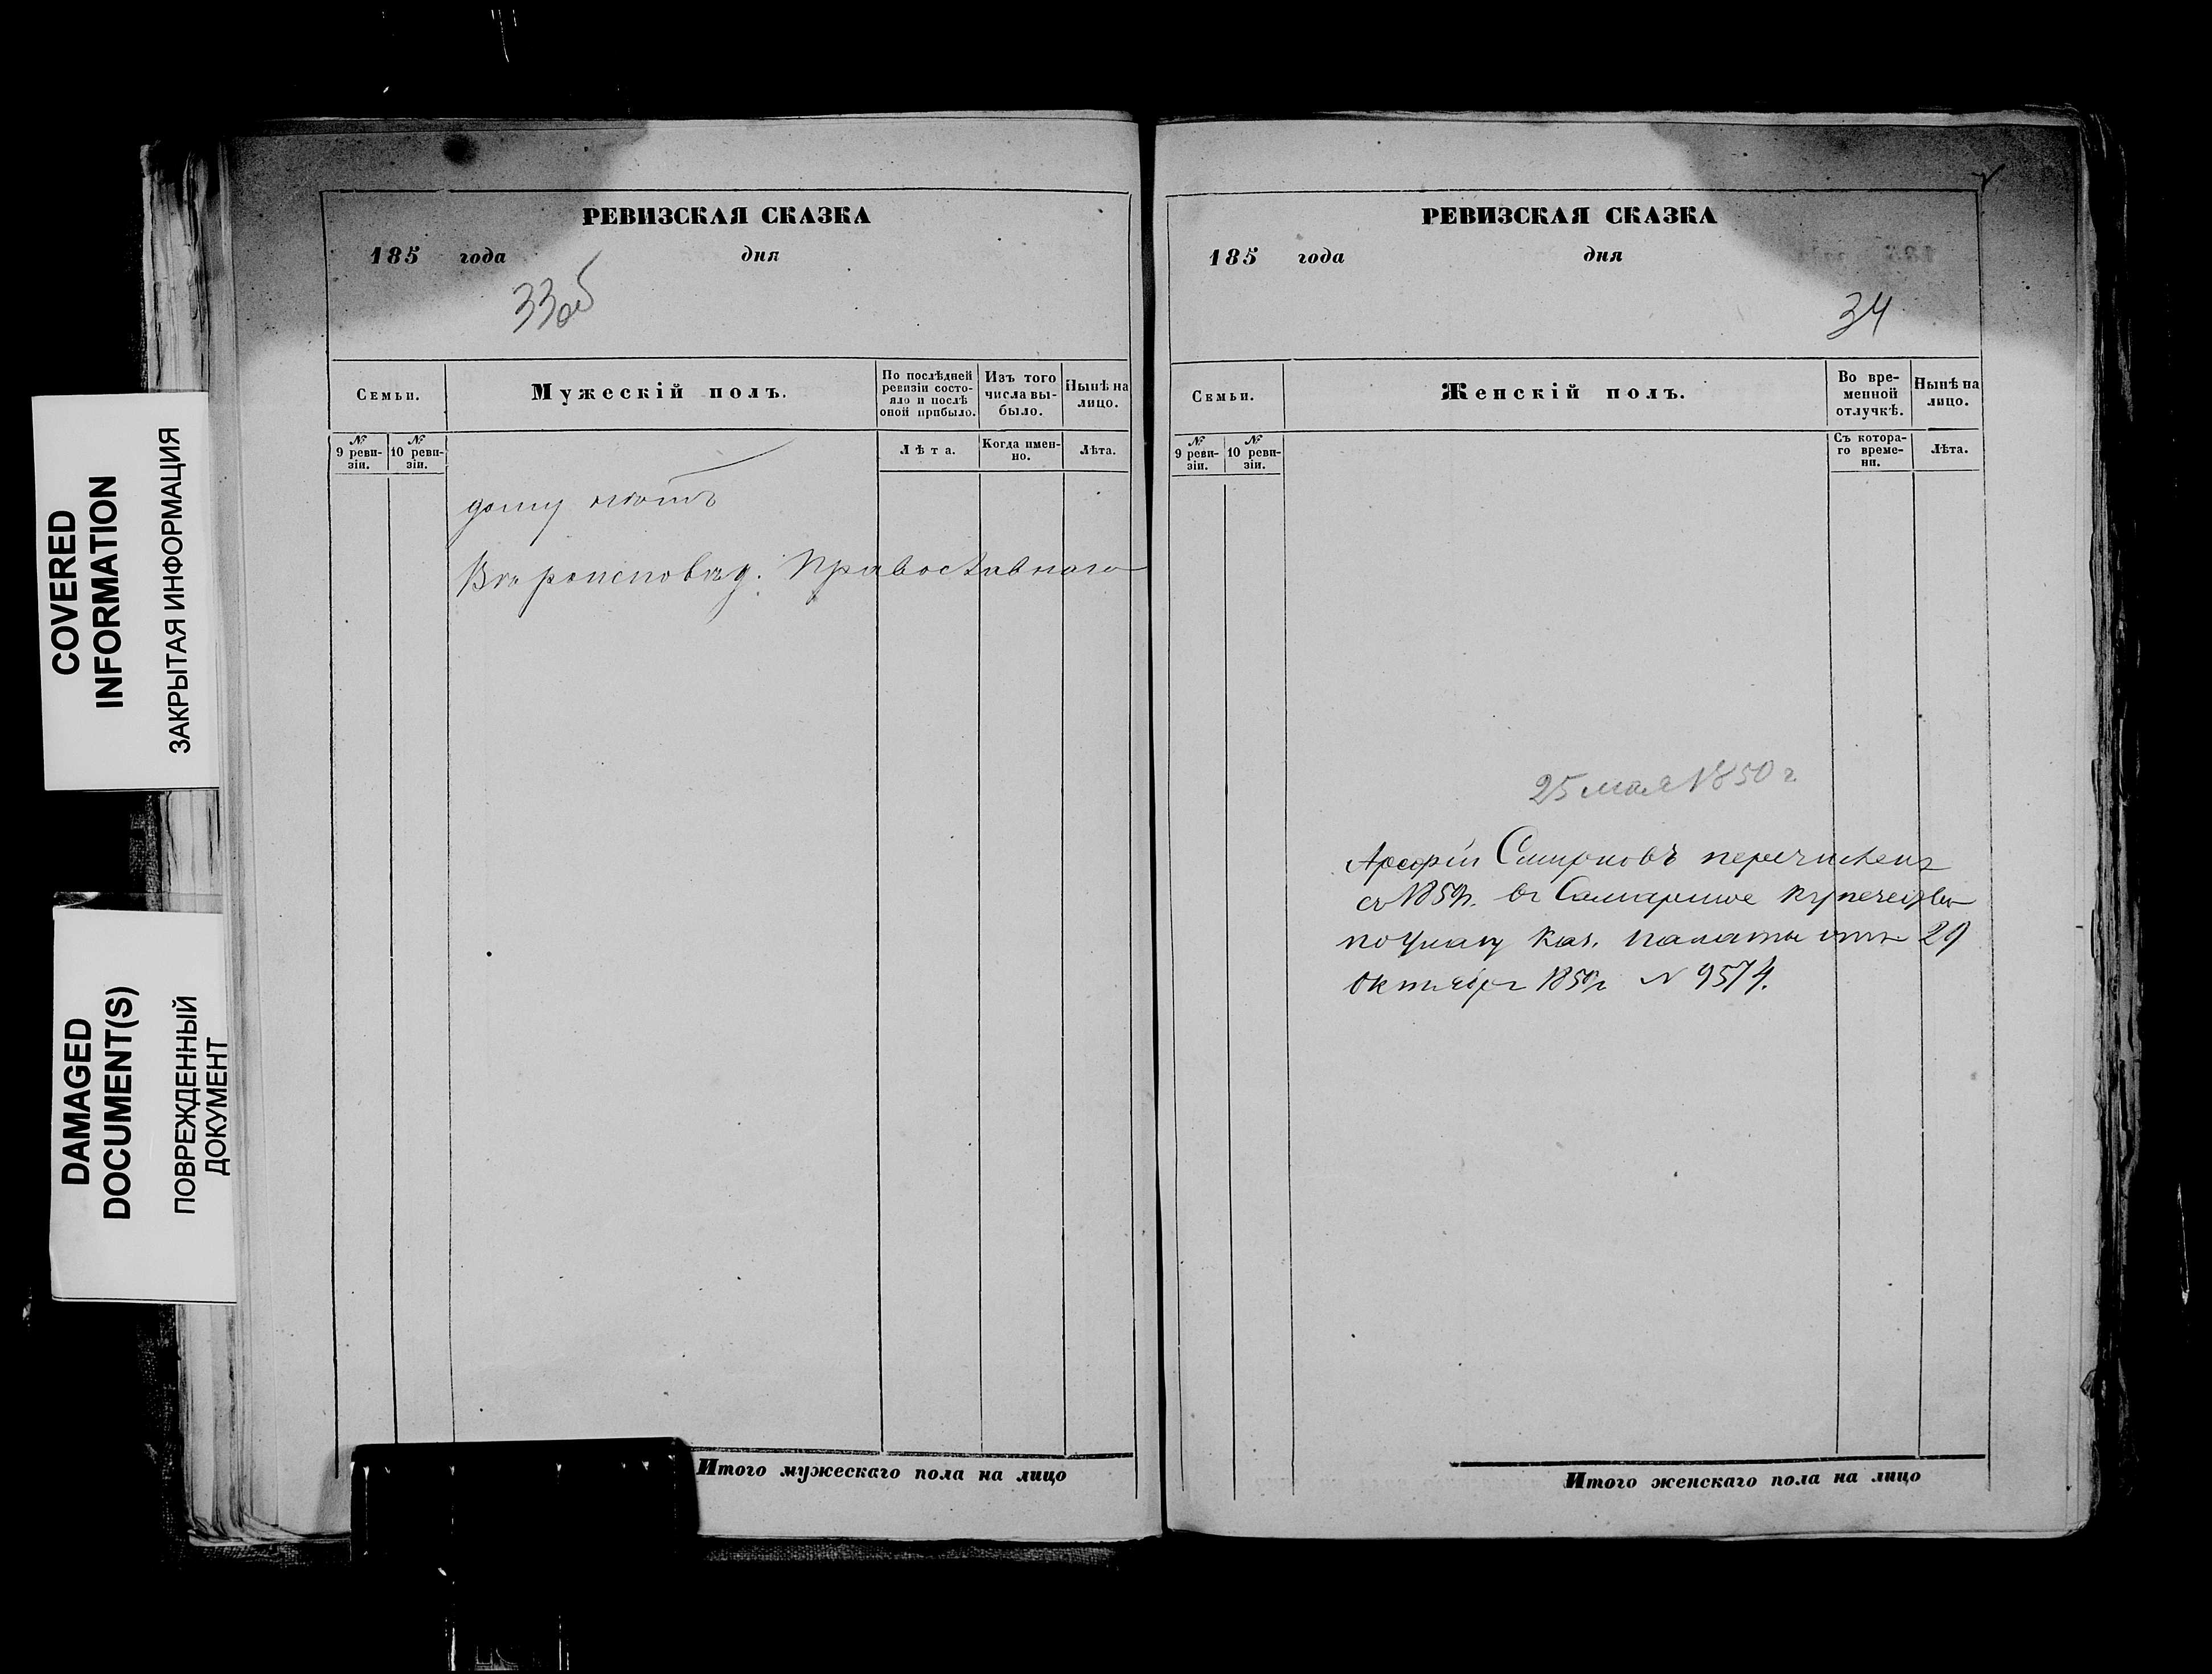 COVERED
INFORMATION
ЗАКРЫТАЯ ИНФОРМАЦИЯ
DAMAGED
DOCUMENT(S)
ПОВРЕЖДЕННЫЙ
ДОКУМЕНТ
РЕВИЗСКАЯ СКАЗКА
185 года дня
33об
Семьи.
Мужескій полъ.
По послѣдней
ревизіи состо-
яло и послѣ
оной прибыло.
Изъ того
числа вы-
было.
Нынѣ на
лицо.
№
9 реви-
зіи.
№
10 реви-
зіи.
Лѣта.
Когда имен-
но.
Лѣта.
дому
Вѣроисповѣд. Православнаго
Итого мужескаго пола на лицо
РЕВИЗСКАЯ СКАЗКА
185 года дня
34
Семьи.
Женскій полъ.
Во вре-
менной
отлучкѣ.
Нынѣ на
лицо.
№
9 реви-
зіи.
№
10 реви-
зіи.
Съ котора-
го време-
ни.
Лѣта.
25 мая 1850 г
Смирновъ перечисленъ
въ Самарское купечество
по Указу Каз. палаты отъ 29
Октября N 9574.
Итого женскаго пола на лицо